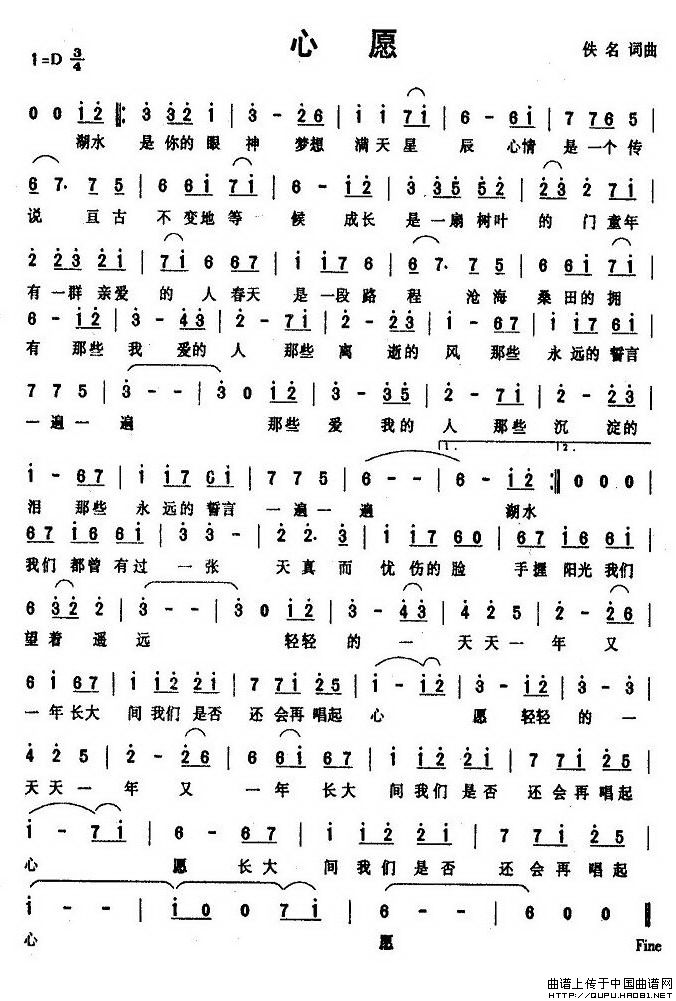 心 愿
1=D 3/4
佚 名 词曲
0 0 i2 |: 3 32 1 | 3 - 26 | i i 7i | 6 - 6i | 7 76 5 |
湖水 是 你的 眼 神 梦想 满 天 星 辰 心情 是 一个 传
6 7. 7 5 | 6 6i 7i | 6 - i2 | 3 35 52 | 23 2 7i |
说 亘 古 不 变地 等 候 成长 是 一扇 树叶 的 门 童年
2 23 2i | 7i 6 67 | i 76 5 | 6 7. 5 | 6 6i 7i |
有 一群 亲爱 的 人 春天 是 一段 路 程 沧海 桑田 的 拥
6 - i2 | 3 - 43 | 2 - 7i | 2 - 43 | i - 67 | i i7 6i |
有 那些 我 爱的 人 那些 离 逝的 风 那些 永 远的 誓言
7 7 5 | 3 - - | 3 0 i2 | 3 - 35 | 2 - 7i | 2 - 23 |
一 遍 一 遍 那些 爱 我的 人 那些 沉 淀的
1. 2.
i - 67 | i i7 6i | 7 7 5 | 6 - - | 6 - i2 :| 0 0 0 |
泪 那些 永 远的 誓言 一 遍 一 遍 湖水
67 i6 6i | 3 - 3 | 2 2. 3 | i i7 60 | 67 i6 6i |
我们 都曾 有过 一 张 天 真 而 忧 伤的 脸 手握 阳光 我们
6 32 2 | 3 - - | 3 0 i2 | 3 - 43 | 4 2 5 | 2 - 26 |
望 着 遥 远 轻轻 的 一 天 天 一 年 又
6 i 67 | i i2 2i | 7 7i 25 | i - i2 | 3 - i2 | 3 - 3 |
一 年 长大 间 我们 是否 还 会再 唱起 心 愿 轻轻 的 一
4 2 5 | 2 - 26 | 6 6i 67 | i i2 2i | 7 7i 25 |
天 天 一 年 又 一 年 长大 间 我们 是否 还 会再 唱起
i - 7i | 6 - 67 | i i2 2i | 7 7i 25 |
心 愿 长大 间 我们 是否 还 会再 唱起
i - - | i 0 0 7i | 6 - - | 6 0 0 ‖
心 愿 Fine
曲谱上传于中国曲谱网
HTTP://QUPU.HAO81.NET